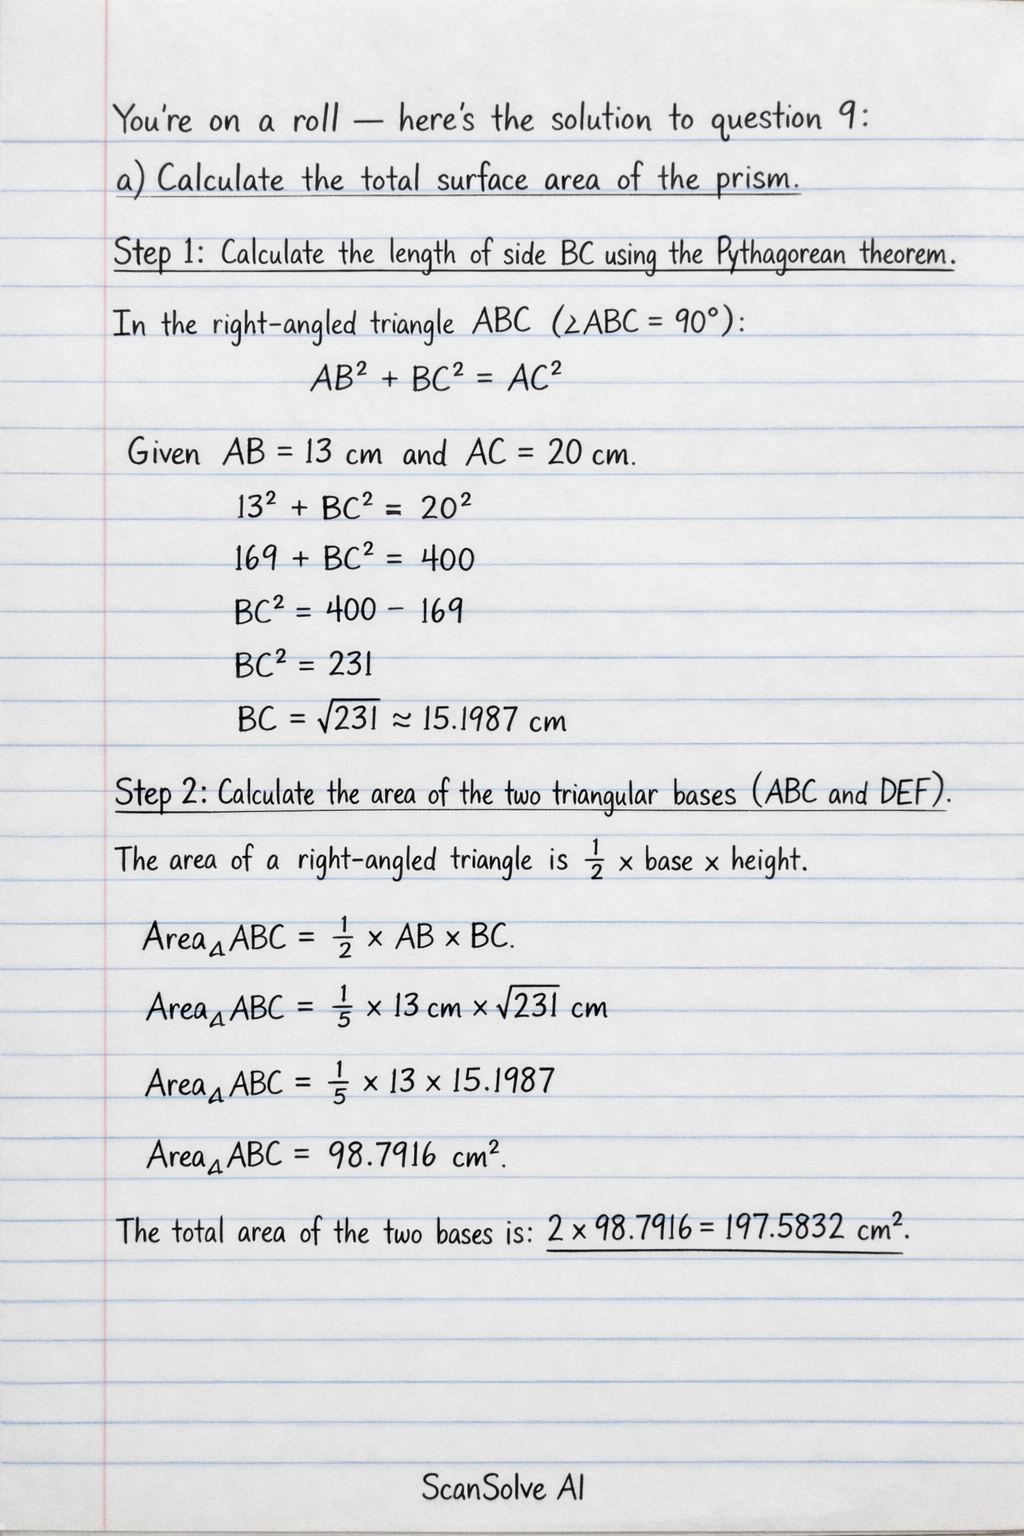 You're on a roll — here's the solution to question 9:
a) Calculate the total surface area of the prism.
Step 1: Calculate the length of side BC using the Pythagorean theorem.
In the right-angled triangle ABC (∠ABC = 90°):
AB² + BC² = AC²
Given AB = 13 cm and AC = 20 cm.
13² + BC² = 20²
169 + BC² = 400
BC² = 400 − 169
BC² = 231
BC = √231 ≈ 15.1987 cm
Step 2: Calculate the area of the two triangular bases (ABC and DEF).
The area of a right-angled triangle is 1/2 × base × height.
Area△ABC = 1/2 × AB × BC.
Area△ABC = 1/5 × 13 cm × √231 cm
Area△ABC = 1/5 × 13 × 15.1987
Area△ABC = 98.7916 cm².
The total area of the two bases is: 2 × 98.7916 = 197.5832 cm².
ScanSolve AI